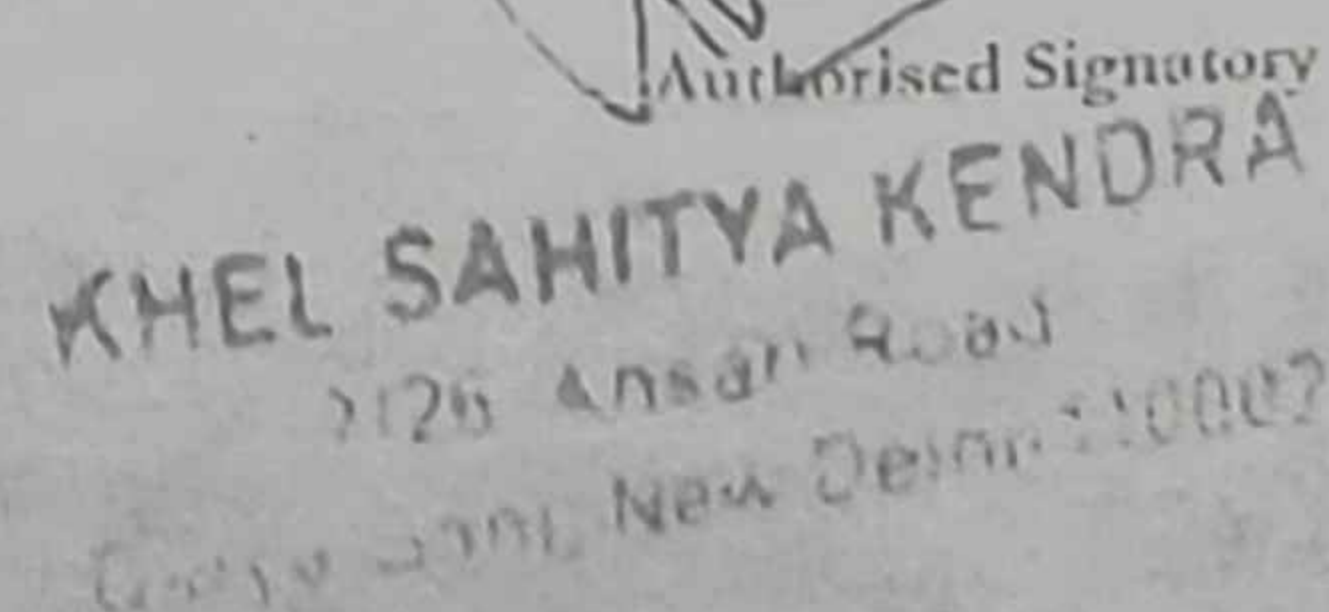 Authorised Signatory
KHEL SAHITYA KENDRA
Ansari Road
New Delhi-110002